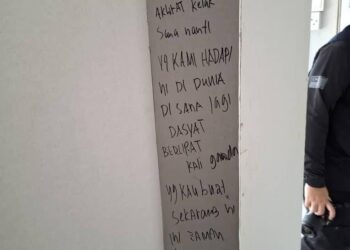 AKHIRAT KELAK
SANA NANTI
YG KAMI HADAPI
INI DI DUNIA
DI SANA LAGI
DASYAT
BERLIPAT
KALI
YG KAU buat
SEKARANG INI
INI